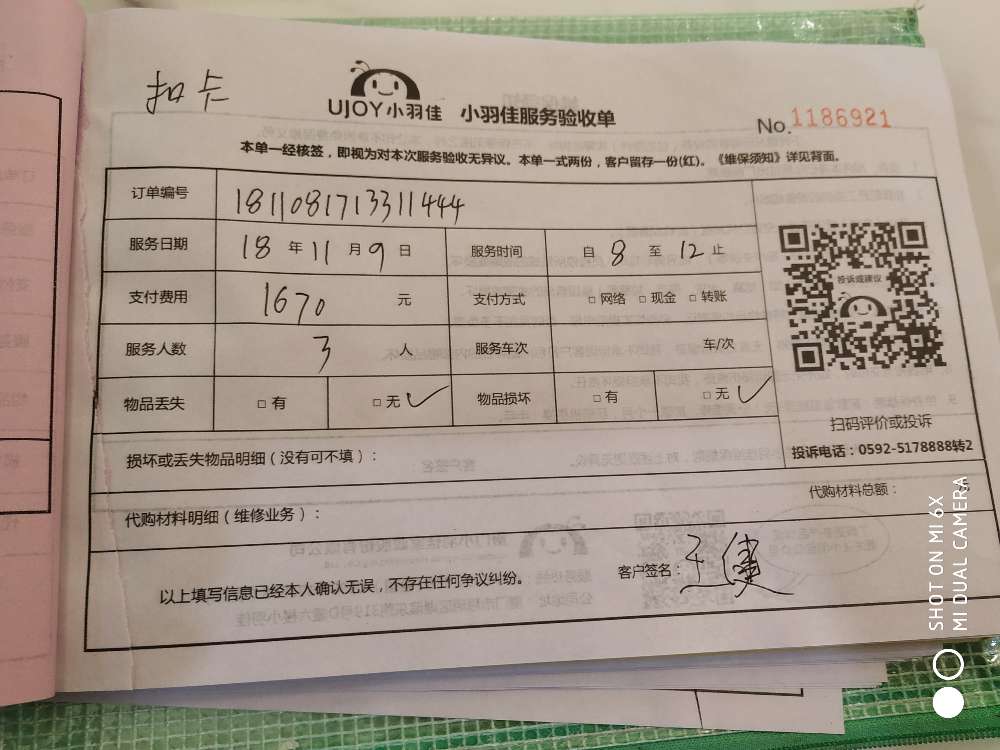 扣卡
UJOY小羽佳 小羽佳服务验收单
No.1186921
本单一经核签，即视为对本次服务验收无异议。本单一式两份，客户留存一份(红)。《维保须知》详见背面。
订单编号 1811081713311444
服务日期 18 年 11 月 9 日 服务时间 自 8 至 12 止
支付费用 1670 元 支付方式 □ 网络 □ 现金 □ 转账
服务人数 3 人 服务车次 车/次
物品丢失 □ 有 □ 无 ✓ 物品损坏 □ 有 □ 无 ✓
投诉或建议
扫码评价或投诉
投诉电话：0592-5178888转2
损坏或丢失物品明细（没有可不填）：
代购材料明细（维修业务）：
代购材料总额：
以上填写信息已经本人确认无误，不存在任何争议纠纷。
客户签名：
SHOT ON MI 6X
MI DUAL CAMERA